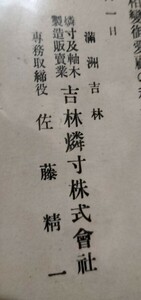 相變御愛顧の
一日
滿洲吉林
燐寸及軸木
製造販賣業
吉林燐寸株式會社
專務取締役
佐藤精一